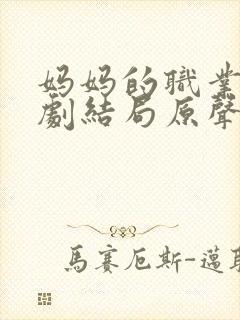 妈妈的職業
劇結局原聲
馬賽厄斯-邁耶